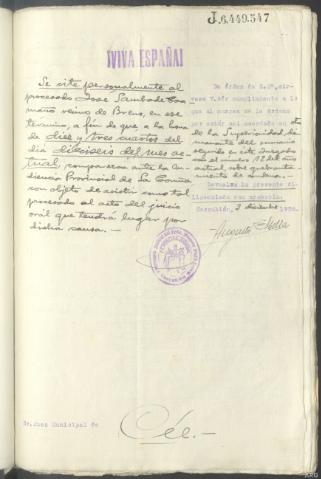 J.6.449.547
¡VIVA ESPAÑA!
Se cite personalmente al
procesado Jose Sambade Caa-
maño vecino de Brens, en ese
término, a fin de que a la hora
de diez y tres cuartos del
día dieciseis del mes ac-
tual, comparezca ante la Au-
diencia Provincial de La Coruña
con objeto de asistir como tal
procesado al acto del juicio
oral que tendrá lugar por
dicha causa. —
De órden de S.Sª, sir-
vase V. dar cumplimiento a lo
que al margen se le ordena
por estar así acordado en
de la Superioridad, di-
manante del sumario
seguido en este Juzgado
con el número 12 del año
actual, sobre quebranta-
miento de
Devuelva la presente di-
ligenciada con urgencia.
Corcubión, 3 diciembre 193
Sr. Juez Municipal de
Cée.—
ARG